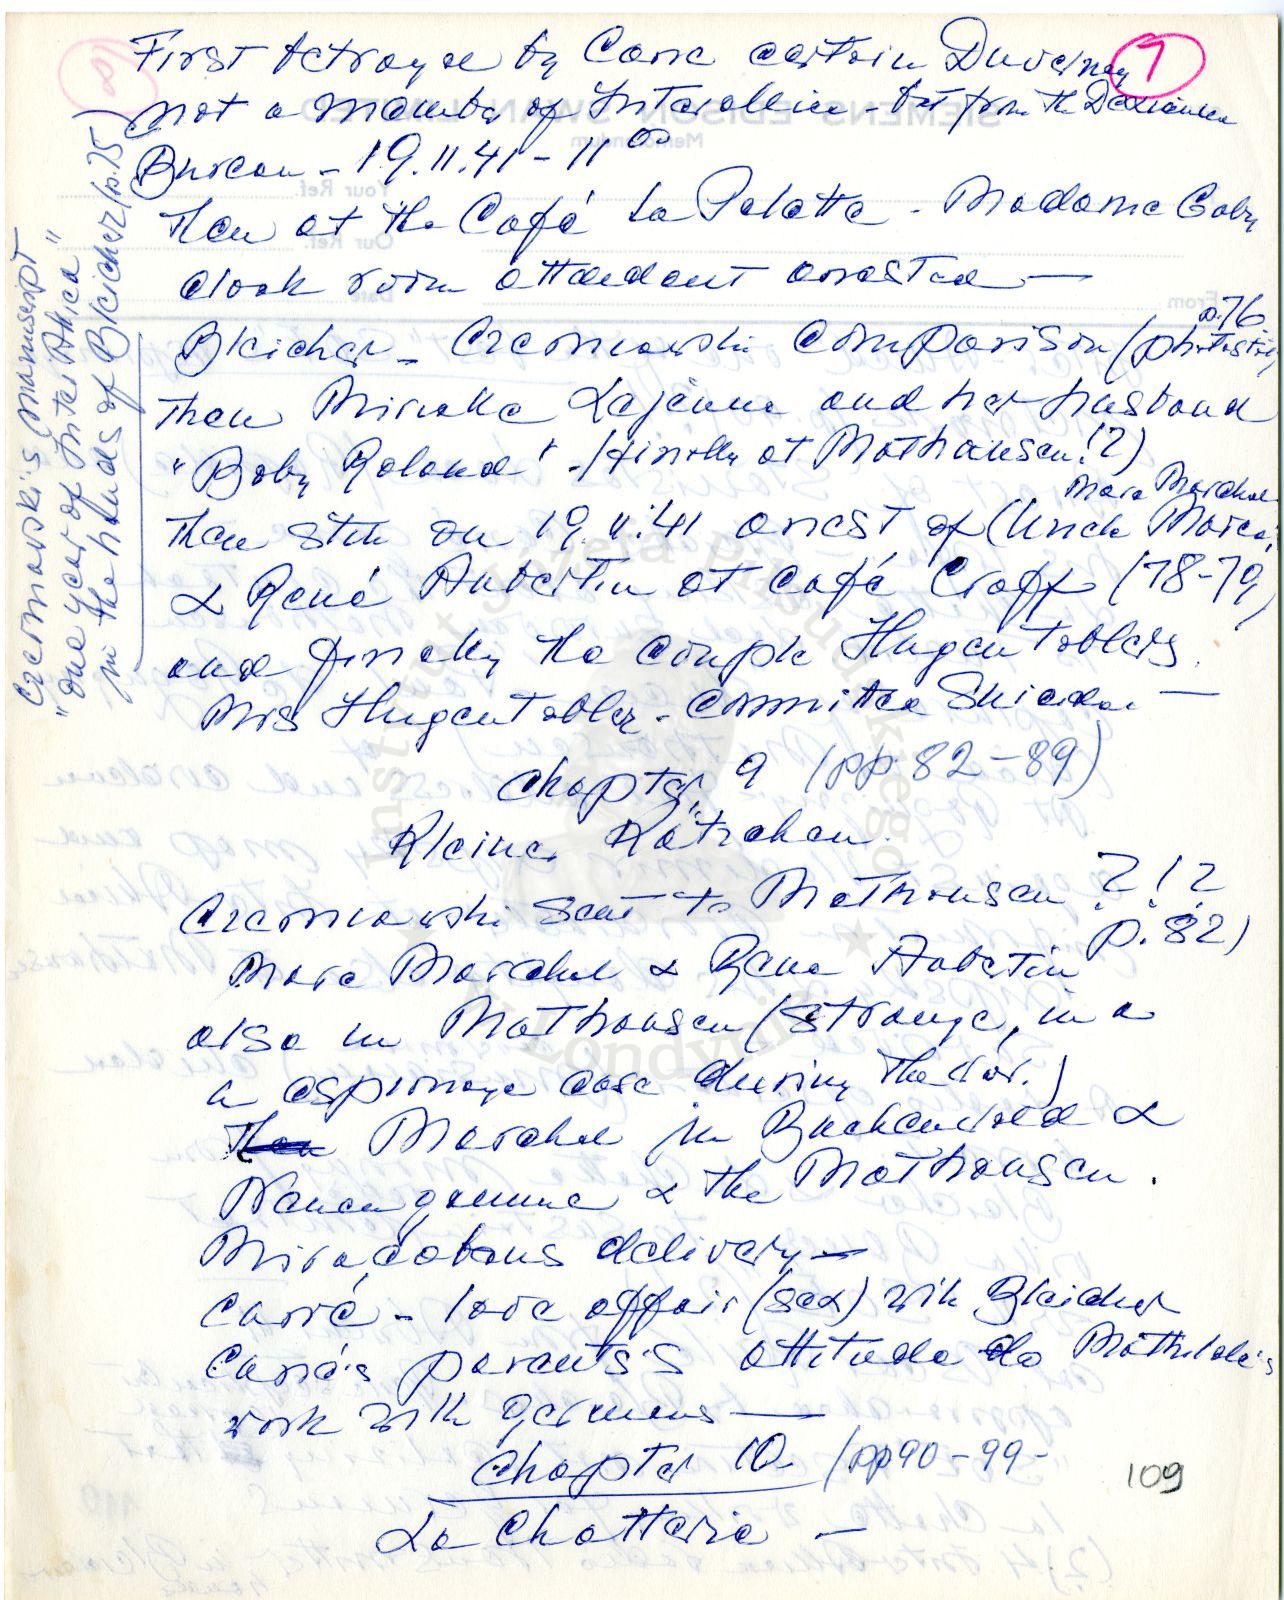 7
First betrayed by Carré certain Duvernoy
not a member of Interalliée - but from the Deuxième
Bureau - 19.11.41 - 11⁰⁰
then at the Café La Palette - Madame Gaby
cloak room attendant arrested —
p. 76
Bleicher - Czerniawski comparison (photostat)
then Mireille Lejeune and her husband
"Boby Roland" - (finally at Mathausen!?)
Marc Marchal
then still on 19.11.41 arrest of (Uncle Marco)
& René Aubertin at Café Graff (78-79)
and finally the couple Hugentoblers.
Mrs Hugentobler - committed Suicide —
Chapter 9 (pp. 82-89)
Kleines Kätzchen.
Czerniawski sent to Mathausen ?!?
p. 82)
Marc Marchal & Rene Aubertin
also in Mathausen (strange, in a
a espionage case during the war.)
Marchal in Buchenwald &
& the Mathausen.
Miraculous delivery —
Carré - love affair (sex) with Bleicher
Carré's parents's attitude to Mathilde's
work with germans —
Chapter 10 (pp 90-99-
La Chatterie —
109
Czerniawski's manuscript
"One year of Inter Allied"
in the hands of Bleicher (p. 75)
8
SIEMENS EDISON SWAN LIMITED
Memorandum
Your Ref.
Our Ref.
From
Date
Instytut Józefa Piłsudskiego
w Londynie